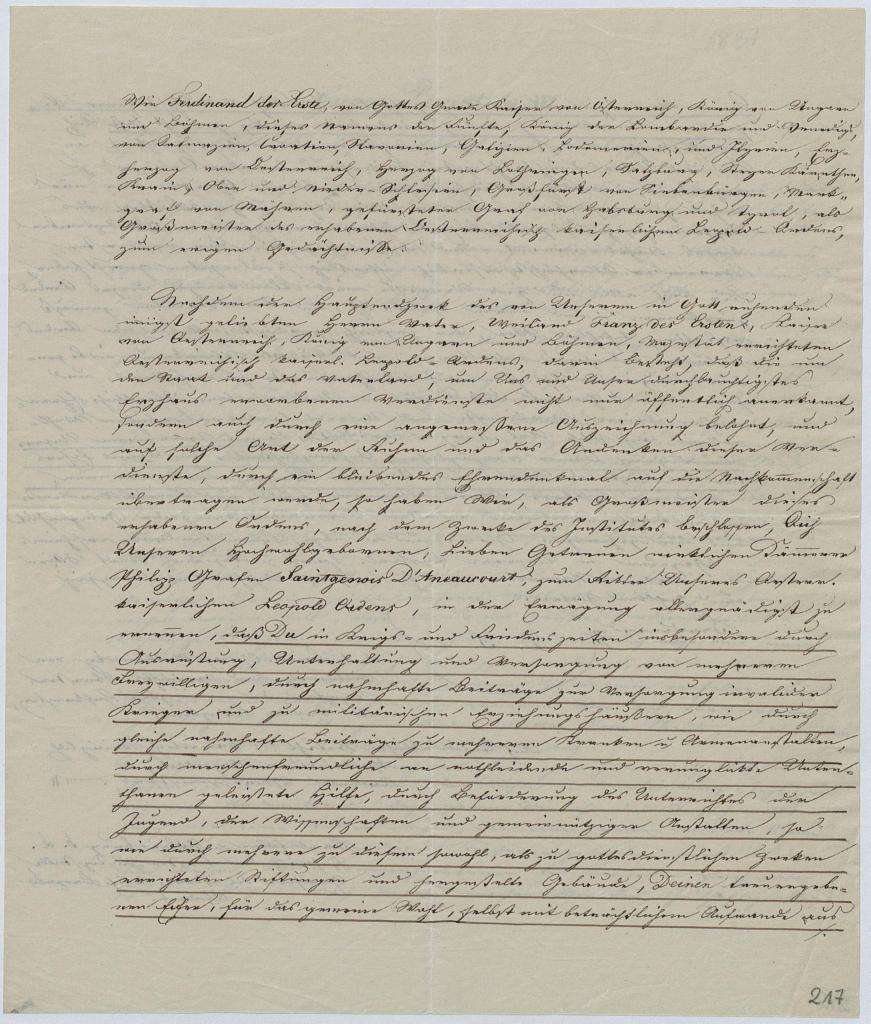 Wir Ferdinand der Erste, von Gottes Gnade Kaiser von Österreich, König von Ungarn
und Böhmen, dieses Namens der Fünfte, König der Lombardie und Venedigs,
von Dalmazien, Croatien, Slavonien, Galizien, Lodomerien, und Illyrien, Erz-
herzog von Oesterreich, Herzog von Lothringen, Salzburg, Steyer Kärnthen,
Krain, Ober und Nieder-Schlesien, Großfürst von Siebenbürgen, Mark-
graf von Mähren, gefürsteter Graf von Habsburg und Tyrol, als
Großmeister des erhabenen Oesterreichisch kaiserlichen Leopold-Ordens,
zum ewigen Gedächtnisse.
Nachdem der Hauptendzweck des von Unserem in Gott ruhenden
innigst geliebten Herrn Vater, Weiland Franz des Ersten, Kaiser
von Oesterreich, König von Ungarn und Böhmen, Majestät errichteten
Oesterreichisch kaiserl. Leopold-Ordens, darin besteht, daß die um
den Staat und das Vaterland, um Uns und Unser durchlauchtigstes
Erzhaus erworbenen Verdienste nicht nur öffentlich anerkannt,
sondern auch durch eine angemessene Auszeichnung belohnt, und
auf solche Art der Ruhm und das Andenken dieser Ver-
dienste, durch ein bleibendes Ehrendenkmal auf die Nachkommenschaft
übertragen werde, so haben Wir, als Großmeister dieses
erhabenen Ordens, nach dem Zwecke des Institutes beschlossen, Dich
Unseren Hochwohlgebornen, Lieben Getreuen wirklichen Kämmerer
Philipp Grafen Saintgenois D'Aneaucourt, zum Ritter Unseres Oesterr.
kaiserlichen Leopold Ordens, in der Erwägung allergnädigst zu
ernennen, daß Du in Kriegs- und Friedenszeiten insbesondere durch
Ausrüstung, Unterhaltung und Versorgung von mehreren
Freywilligen, durch nahmhafte Beiträge zur Versorgung invalider
Krieger und zu militärischen Erziehungshäusern, wie durch
gleiche nahmhafte Beiträge zu mehreren Kranken u Armenanstalten,
durch menschenfreundliche an nothleidende und verunglükte Unter-
thanen geleistete Hilfe, durch Beförderung des Unterrichtes der
Jugend, der Wissenschaften und gemeinnütziger Anstalten, so
wie durch mehrere zu diesem sowohl, als zu gottesdienstlichen Zweken
errichteten Stiftungen und hergestelte Gebäude, Deinen treuergebe-
nen Eifer, für das gemeine Wohl, selbst mit beträchtlichem Aufwande aus
217